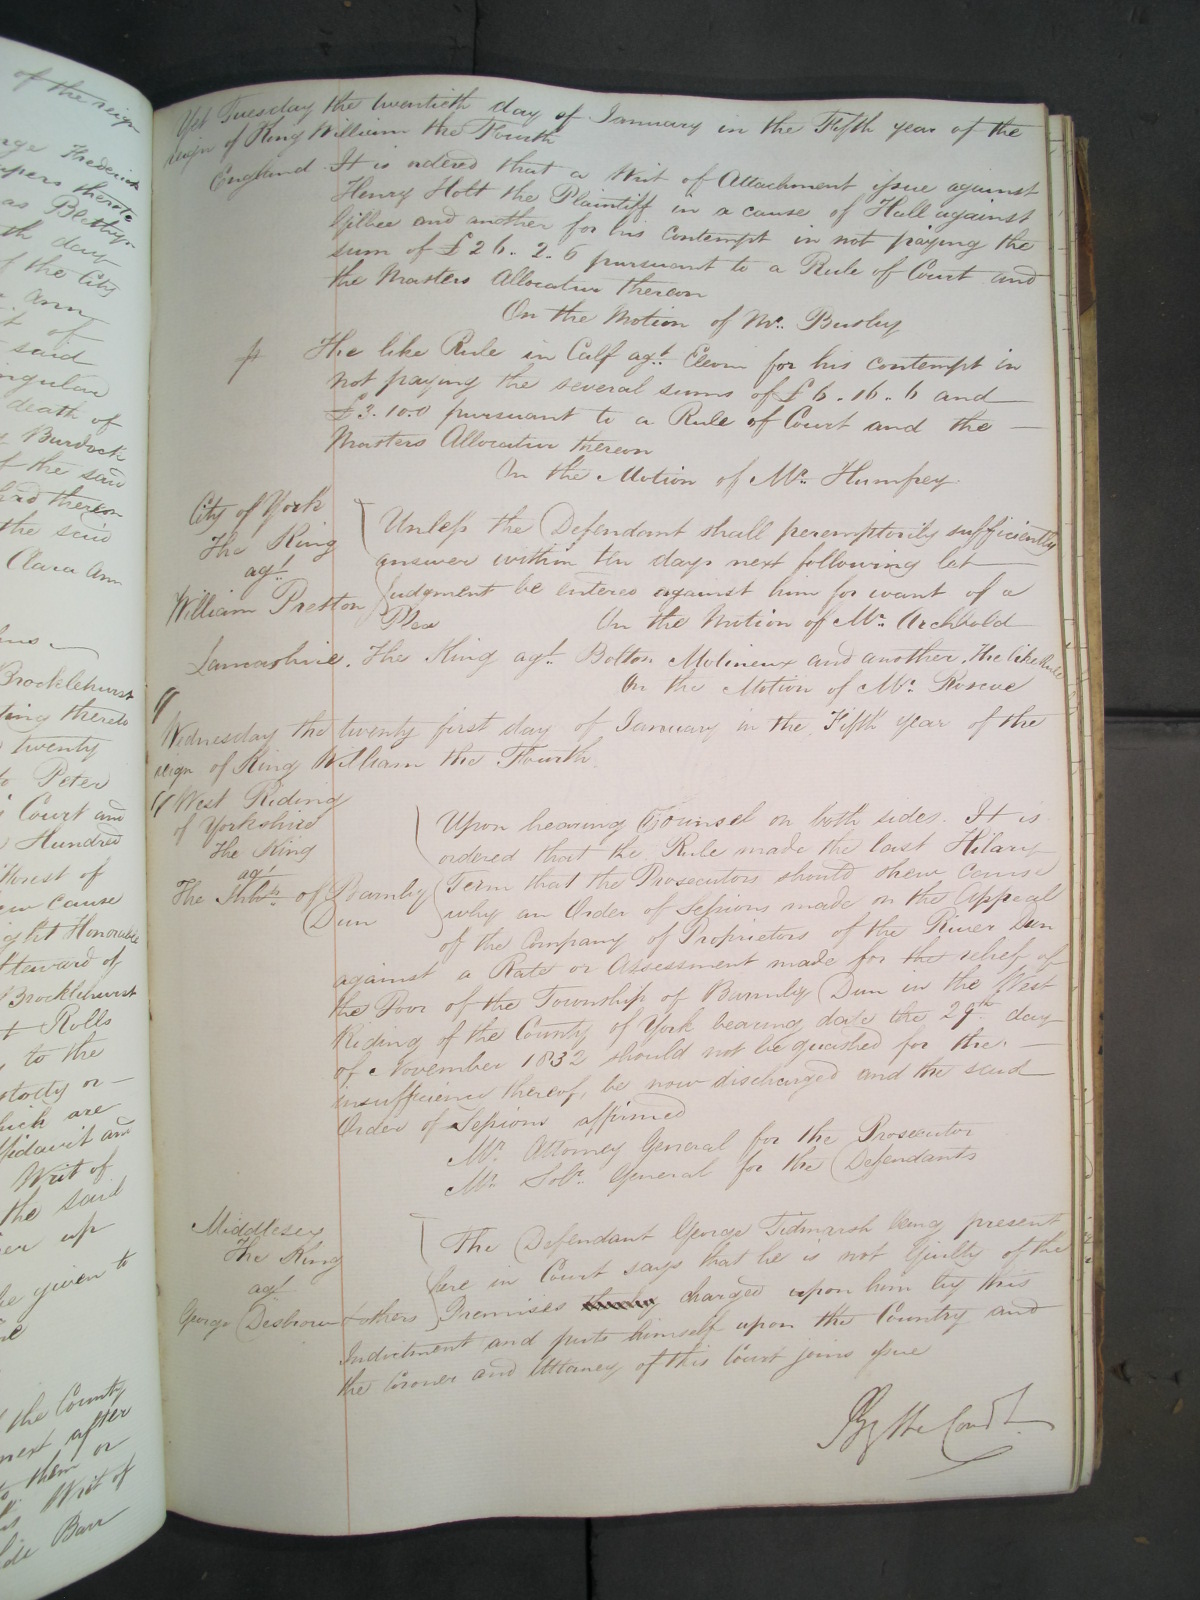 of the reign
Frederick
thereto
as
day
of the City
Ann
t of
said
death of
Burdock
f the said
thereon
the said
Clara Ann
Brocklehurst
thereto
twenty
to Peter
Court and
Hundred
cause
ight Honorable
Steward of
Brocklehurst
Rolls
to the
or
hich are
ffidavit and
Writ of
the said
up
be given to
the County
next after
to them or
Writ of
de Barr
Yet Tuesday the twentieth day of January in the Fifth year of the
reign of King William the Fourth
England It is ordered that a Writ of Attachment issue against
Henry Holt the Plaintiff in a cause of Hall against
Gilbee and another for his contempt in not paying the
sum of £26.. 2.. 6 pursuant to a Rule of Court and
the Masters Allocatur thereon
On the Motion of Mr. Busby
The like Rule in Calf agt. for his contempt in
not paying the several sums of £6 .. 16 .. 6 and
£3. 10. 0 pursuant to a Rule of Court and the
Masters Allocatur thereon
On the Motion of Mr. Humfrey
City of York
The King
agt.
William Preston
Unless the Defendant shall peremptorily sufficiently
answer within ten days next following let
Judgment be entered against him for want of a
Plea On the Motion of Mr. Archbold
Lancashire. The King agt. Bolton Molineux and another. The like Rule
On the Motion of Mr. Roscoe
Wednesday the twenty first day of January in the Fifth year of the
reign of King William the Fourth
West Riding
of Yorkshire
The King
agt
The Inhbts. of Barnby
Dun
Upon hearing Counsel on both sides. It is
ordered that the Rule made the last Hilary
Term that the Prosecutors should shew cause
why an Order of Sessions made on the Appeal
of the Company of Proprietors of the River Dun
against a Rate or Assessment made for the relief of
the Poor of the Township of Barnby Dun in the West
Riding of the County of York bearing date the 29th. day
of November 1832 should not be quashed for the
insufficiency thereof, be now discharged and the said
Order of Sessions affirmed
Mr. Attorney General for the Prosecutor
Mr. Solr. General for the Defendants
Middlesex
The King
agt
George Disbrow & others
The Defendant George Tidmarsh being present
here in Court says that he is not Guilty of the
Premises charged upon him by this
Indictment and puts himself upon the Country and
the Coroner and Attorney of this Court joins issue
By the Court